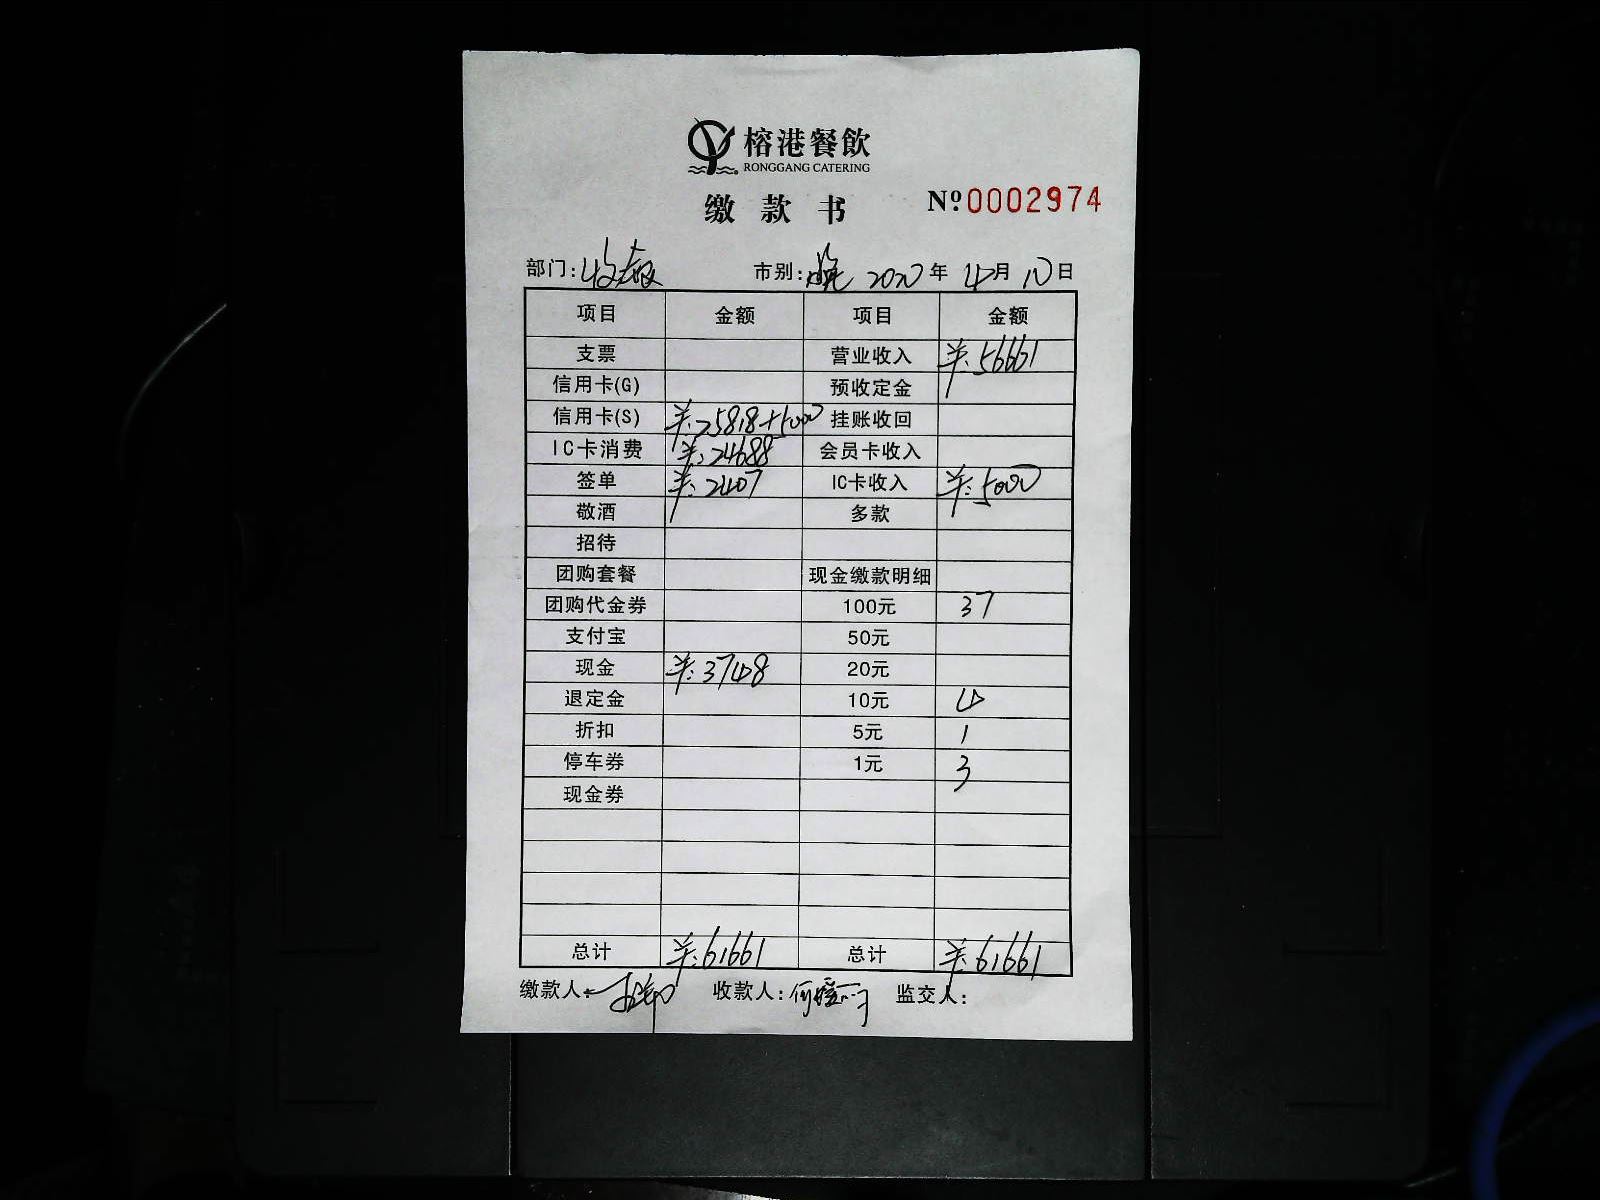 榕港餐飲
RONGGANG CATERING
缴款书 №0002974
部门: 收款 市别: 晚 2020年4月10日
项目 金额 项目 金额
支票 营业收入 羊:56661
信用卡(G) 预收定金
信用卡(S) 羊:25818+5000 挂账收回
IC卡消费 羊:24688 会员卡收入
签单 羊:2407 IC卡收入 羊:5000
敬酒 多款
招待
团购套餐 现金缴款明细
团购代金券 100元 37
支付宝 50元
现金 羊:3748 20元
退定金 10元 4
折扣 5元 1
停车券 1元 3
现金券
总计 羊:61661 总计 羊:61661
缴款人: 收款人: 监交人: